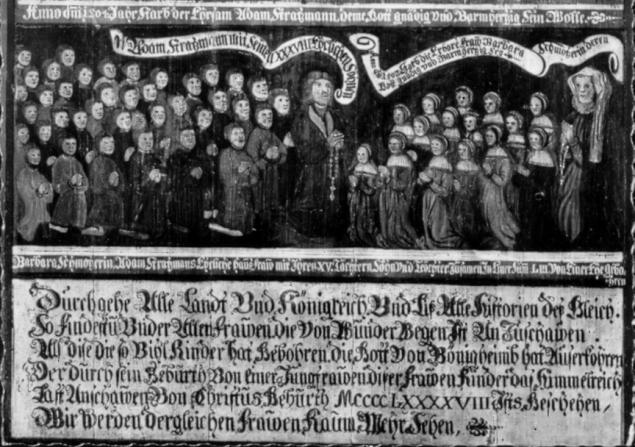 Anno dni 1504 Jahr Starb der Ehrsam Adam Stratzmann, deme Gott gnädig Vnd Barmhertzig Sein Wolle.
Adam Stratzmann mit Seinen XXXVIII Ehlichen Söhnen
Starb die Erbare Fraw Barbara Schmotzerin deren
Gott gnädig Vnd Barmhertzig Sey
Barbara Schmotzerin, Adam Stratzmans Ehliche hauß fraw mit Ihren XV. Töchtern, Söhn Vnd Töchter Zusamen In Einer Sum LIII Von Einer Ehe gebo-
hren
Durchgehe Alle Landt Vnd Königreich, Vnd Liß Alle Historien deß Gleich.
So Findestu Vnder Allen Frawen, die Von Wunder Wegen Ist An Zuschawen
Alß dise die so Vihl Kinder hat Gebohren, die Gott Von Bönigheimb hat Außerkohren
Der durch sein Gebürth Von einer Jungfrawen, diser Frawen Kinder das Himmelreich
Last Anschawen, Von Christus Gebürth MCCCCLXXXXVIII Ists Geschehen,
Wir Werden dergleichen Frawen Kaum Mehr Sehen,